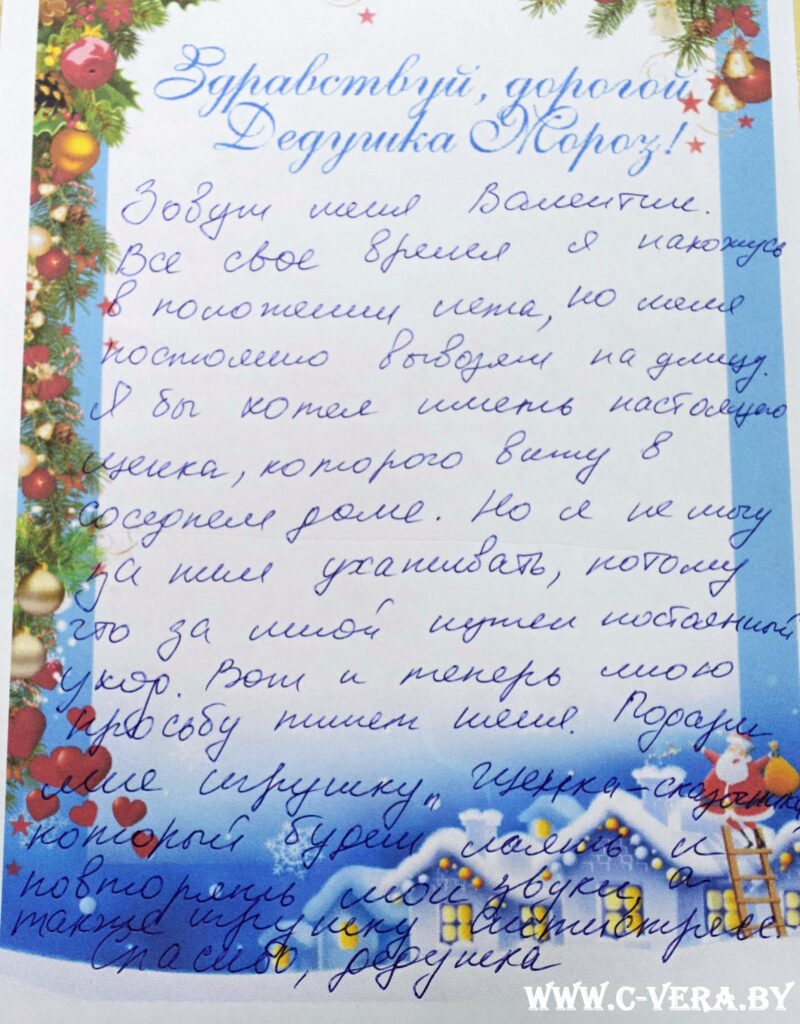 Здравствуй, дорогой
Дедушка Мороз!
Зовут меня Валентин.
Все свое время я нахожусь
в положении лежа, но меня
постоянно вывозят на улицу.
Я бы хотел иметь настоящего
щенка, которого вижу в
соседнем доме. Но я не могу
за ним ухаживать, потому
что за мной нужен постоянный
уход. Вот и теперь мою
просьбу пишет няня. Подари
мне игрушку „Щенка-сказочника
который будет лаять и
повторять мои звуки, а
также игрушку
Спасибо, дедушка
WWW.C-VERA.BY